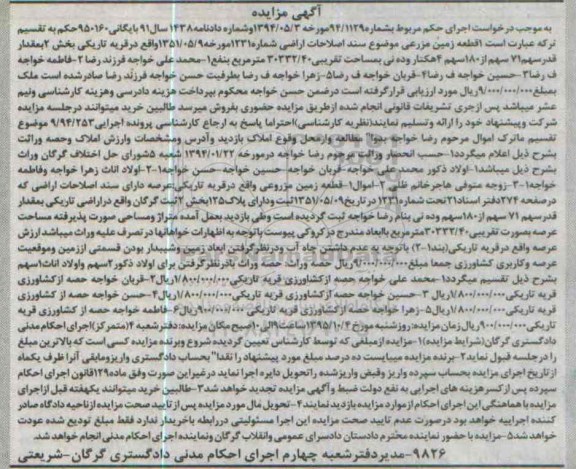 آگهی مزایده
به موجب درخواست اجرای حکم مربوط بشماره ۹۴/۱۱۲۹ مورخه ۱۳۹۴/۰۵/۳ وشماره دادنامه ۱۴۳۸ سال ۹۱ بایگانی ۹۵۰۱۶۰ حکم به تقسیم
ترکه عبارت است ۱ قطعه زمین مزروعی موضوع سند اصلاحات ارضی شماره ۱۲۳۱ مورخه ۱۳۵۱/۰۵/۹ واقع درقریه تاریکی بخش ۲ بمقدار
قدرسهم ۷۱ سهم از ۱۸۰ سهم ۴ هکتار وده نی بمساحت تقریبی ۳۰۳۳۲/۴۰ مترمربع بنفع ۱-محمد علی خواجه فرزند رضا ۲-فاطمه خواجه
ف رضا ۳-حسین خواجه ف رضا ۴-قربان خواجه ف رضا ۵-زهرا خواجه ف رضا بطرفیت حسن خواجه فرزند رضا صادرشده است ملک
بمبلغ ۹/۰۰۰/۰۰۰/۰۰۰ ریال مورد ارزیابی قرارگرفته است درضمن حسن خواجه محکوم بپرداخت هزینه دادرسی وهزینه کارشناسی ونیم
عشر میباشد پس ازجری تشریفات قانونی انجام شده ازطریق مزایده حضوری بفروش میرسد طالبین خرید میتوانند درجلسه مزایده
شرکت وپیشنهاد خود را ارائه وتسلیم نمایند(نظریه کارشناسی)احتراما پاسخ به ارجاع کارشناسی پرونده اجرایی ۹/۹۴/۲۵۳ موضوع
تقسیم ماترک اموال مرحوم رضا خواجه بدوا" مطالعه وازمحل وقوع املاک بازدید وآدرس ومشخصات وارزش املاک وحصه وراثت
بشرح ذیل اعلام میگردد ۱-حسب انحصار وراثت مرحوم رضا خواجه درمورخه ۱۳۹۴/۰۱/۲۲ شعبه ۵ شورای حل اختلاف گرگان وراث
بشرح ذیل میباشد ۱-اولاد ذکور محمد علی خواجه-قربان خواجه- حسین خواجه- حسن خواجه ۲-۱-اولاد اناث زهرا خواجه وفاطمه
خواجه ۳-۱-زوجه متوفی هاجرخانم قلی؟ ۲-اموال ۱-قطعه زمین مزروعی واقع درقریه تاریکی عرصه دارای سند اصلاحات ارضی که
درصفحه ۲۷۴ دفتر اسناد ۲۱ تحت شماره ۱۲۳۱ در تاریخ ۱۳۵۱/۰۵/۰۹ ثبت ودارای پلاک ۱۲۵ بخش ۲ ثبت گرگان واقع دراراضی تاریکی بمقدار
قدرسهم ۷۱ سهم از ۱۸۰ سهم وده نی بنام رضا خواجه ثبت گردیده است وطی بازدید بعمل آمده متراژ ومساحی صورت پذیرفته مساحت
عرصه بصورت تقریبی ۳۰۳۳۲/۴۰ مترمربع باابعاد مندرج درکروکی پیوست باتوجه به اظهارات خواهانها در تصرف علیه وراث میباشد ارزش
عرصه واقع درقریه تاریکی(بند ۱-۲) باتوجه به عدم داشتن چاه آب ودرنظرگرفتن ابعاد زمین وشیبدار بودن قسمتی اززمین وموقعیت
عرصه وکاربری کشاورزی جمعا مبلغ ۹/۰۰۰/۰۰۰/۰۰۰ ریال حصه وراث حصه وراث بادرنظرگرفتن برای اولاد ذکور ۲ سهم واولاد اناث ۱ سهم
بشرح ذیل تقسیم میگردد ۱-محمد علی خواجه حصه ازکشاورزی قریه تاریکی ۱/۸۰۰/۰۰۰/۰۰۰ ریال ۲-قربان خواجه حصه ازکشاورزی
قریه تاریکی ۱/۸۰۰/۰۰۰/۰۰۰ ریال ۳-حسین خواجه حصه ازکشاورزی قریه تاریکی ۱/۸۰۰/۰۰۰/۰۰۰ ریال ۴-حسن خواجه حصه از کشاورزی
قریه تاریکی ۱/۸۰۰/۰۰۰/۰۰۰ ریال ۵-زهرا خواجه حصه از کشاورزی قریه تاریکی ۹۰۰/۰۰۰/۰۰۰ ریال ۶-فاطمه خواجه حصه از کشاورزی قریه
تاریکی ۹۰۰/۰۰۰/۰۰۰ ریال زمان مزایده:روزشنبه مورخ ۱۳۹۵/۱۰/۴ ساعت ۹ الی ۱۰ صبح مکان مزایده:دفترشعبه ۴(متمرکز)اجرای احکام مدنی
دادگستری گرگان(شرایط مزایده)۱-مزایده ازمبلغی که توسط کارشناس تعیین گردیده شروع وبرنده مزایده کسی است که بالاترین مبلغ
را درجلسه قبول نماید ۲-برنده مزایده میبایست ده درصد مبلغ مورد پیشنهاد را نقدا" بحساب دادگستری واریزومابقی آنرا ظرف یکماه
از تاریخ اجرای مزایده بحساب سپرده واریز وقبض واریزشده راتحویل دایره اجرا نماید درغیراین صورت وفق ماده ۱۲۹ قانون اجرای احکام
سپرده پس ازکسر هزینه های اجرایی به نفع دولت ضبط وآگهی مزایده تجدید خواهد شد ۳-طالبین خرید میتوانند یکهفته قبل ازاجرای
مزایده با هماهنگی این اجرای احکام ازموارد مزایده بازدید نمایند ۴-تحویل مال مورد مزایده پس از تایید صحت مزایده ازناحیه دادگاه صادر
کننده اجراییه خواهد بود درصورت عدم تایید صحت مزایده این اجرا مسئولیتی دررابطه باخریدار ندارد فقط مبلغ تودیع شده عودت
خواهد شد ۵-مزایده با حضور نماینده محترم دادستان دادسرای عمومی وانقلاب گرگان ونماینده اجرای احکام مدنی انجام خواهد شد.
۹۸۲۶-مدیردفترشعبه چهارم اجرای احکام مدنی دادگستری گرگان-شریعتی